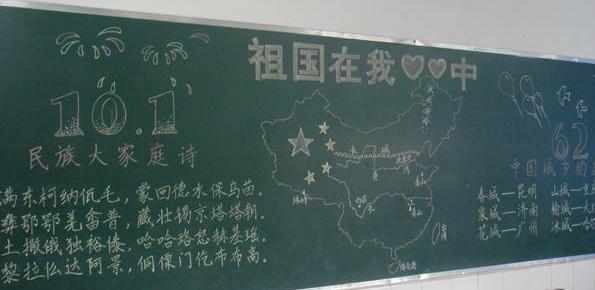 祖国在我中
10.1
民族大家庭诗
满东柯纳佤毛，蒙回德水保乌苗。
彝鄂鄂羌畲普，藏壮锡京塔塔朝。
土撒俄独裕傣，哈哈珞怒赫基瑶。
黎拉仫达阿景，侗傈门仡布布高。
62
中国城市的
春城—昆明 山城—重
泉城—济南
花城—广州 冰城—